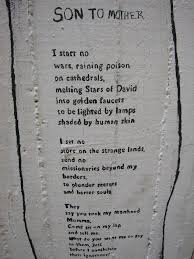 SON TO MOTHER
I start no
wars, raining poison
on cathedrals,
melting Stars of David
into golden faucets
to be lighted by lamps
shaded by human skin
I set no
store on the strange lands,
send no
missionaries beyond my
borders,
to plunder secrets
and barter souls
They
say you took my manhood
Momma.
Come sit on my lap
and tell me,
What do you want me to say
to them, just
before I annihilate
their ignorance?